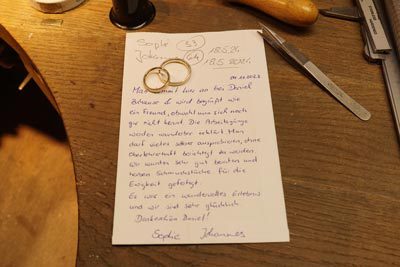 Sophie 53
Johannes 64 18.5.24
18.5.2024
Man kommt hier an bei Daniel
Zuhause & wird begrüßt wie
ein Freund, obwohl man sich noch
gar nicht kennt. Die Arbeitsgänge
werden wunderbar erklärt. Man
darf vieles selber ausprobieren, ohne
Oberlehrerhaft belächelt zu werden.
Wir wurden sehr gut beraten und
haben Schmuckstücke für die
Ewigkeit gefertigt.
Es war ein wundervolles Erlebnis
und wir sind sehr glücklich.
Dankeschön Daniel!
Sophie Johannes